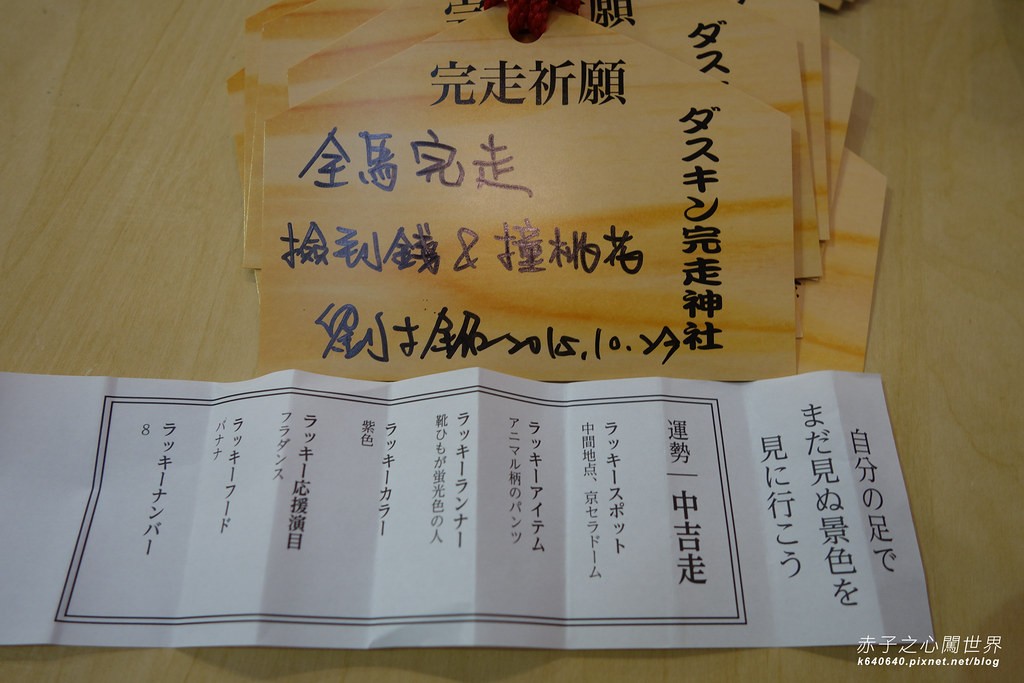 完走祈願
完走祈願
ダス
ダスキン完走神社
全馬完走
撿到錢 & 撞桃花
2015.10.23
自分の足で
まだ見ぬ景色を
見に行こう
運勢｜中吉走
ラッキースポット
中間地点、京セラドーム
ラッキーアイテム
アニマル柄のパンツ
ラッキーランナー
靴ひもが蛍光色の人
ラッキーカラー
紫色
ラッキー応援演目
フラダンス
ラッキーフード
バナナ
ラッキーナンバー
8
赤子之心闖世界
k640640.pixnet.net/blog